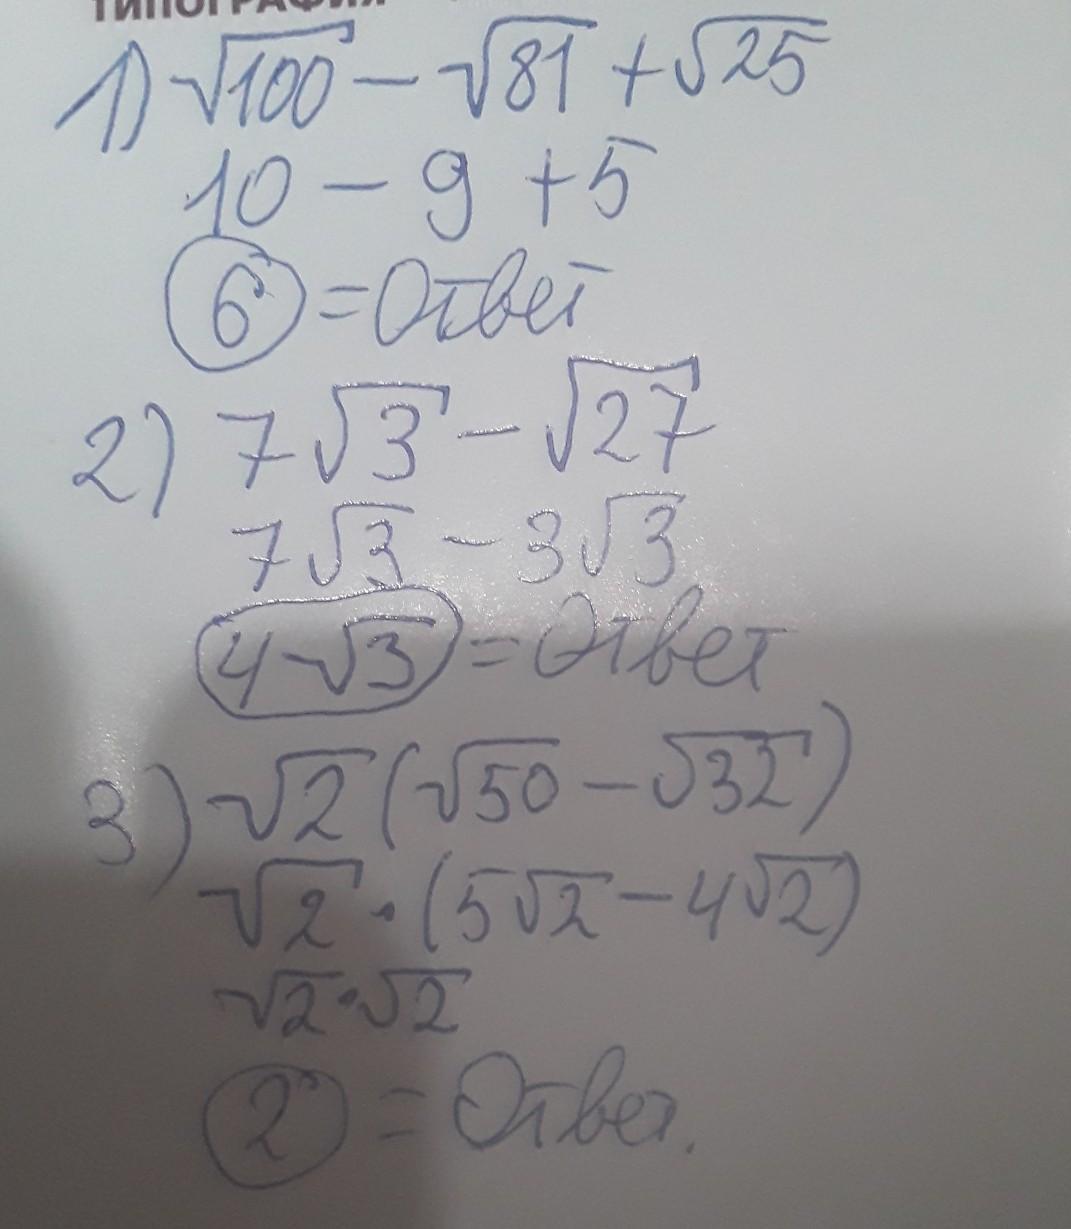 ТИПОГРАФИЯ
1) √100 − √81 + √25
10 − 9 + 5
6 = Ответ
2) 7√3 − √27
7√3 − 3√3
4√3 = Ответ
3) √2 (√50 − √32)
√2 · (5√2 − 4√2)
√2 · √2
2 = Ответ.